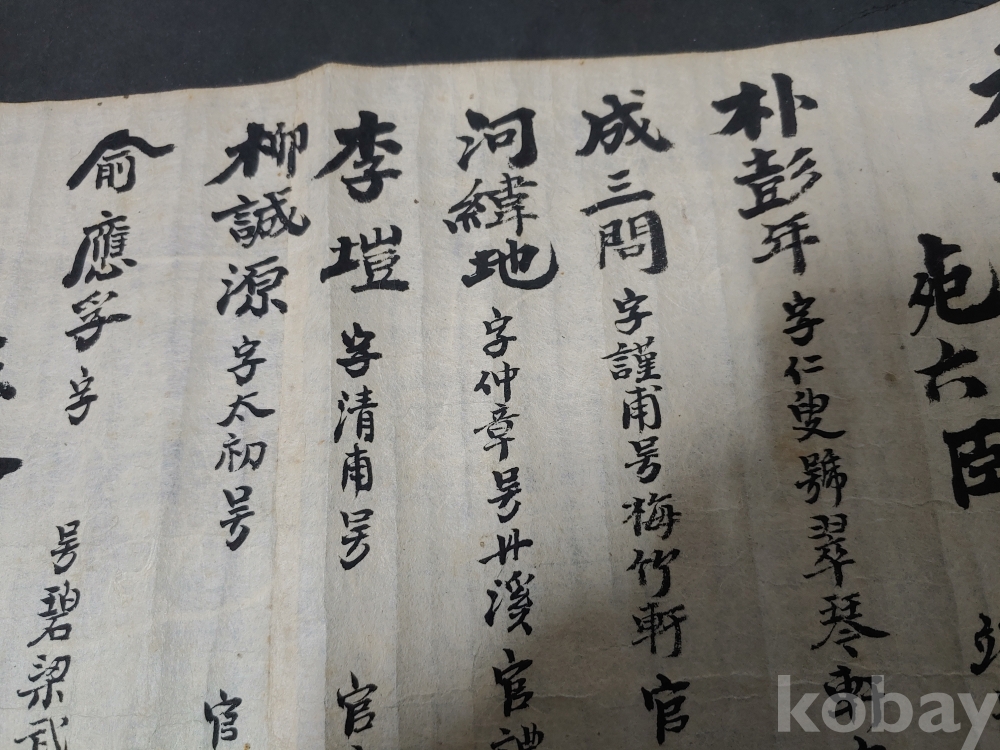 死六臣
朴彭年 字仁叟號翠琴軒
成三問 字謹甫号梅竹軒 官
河緯地 字仲章号丹溪 官禮
李塏 字清甫号 官
柳誠源 字太初号 官
俞應孚 字 号碧梁武
kobay